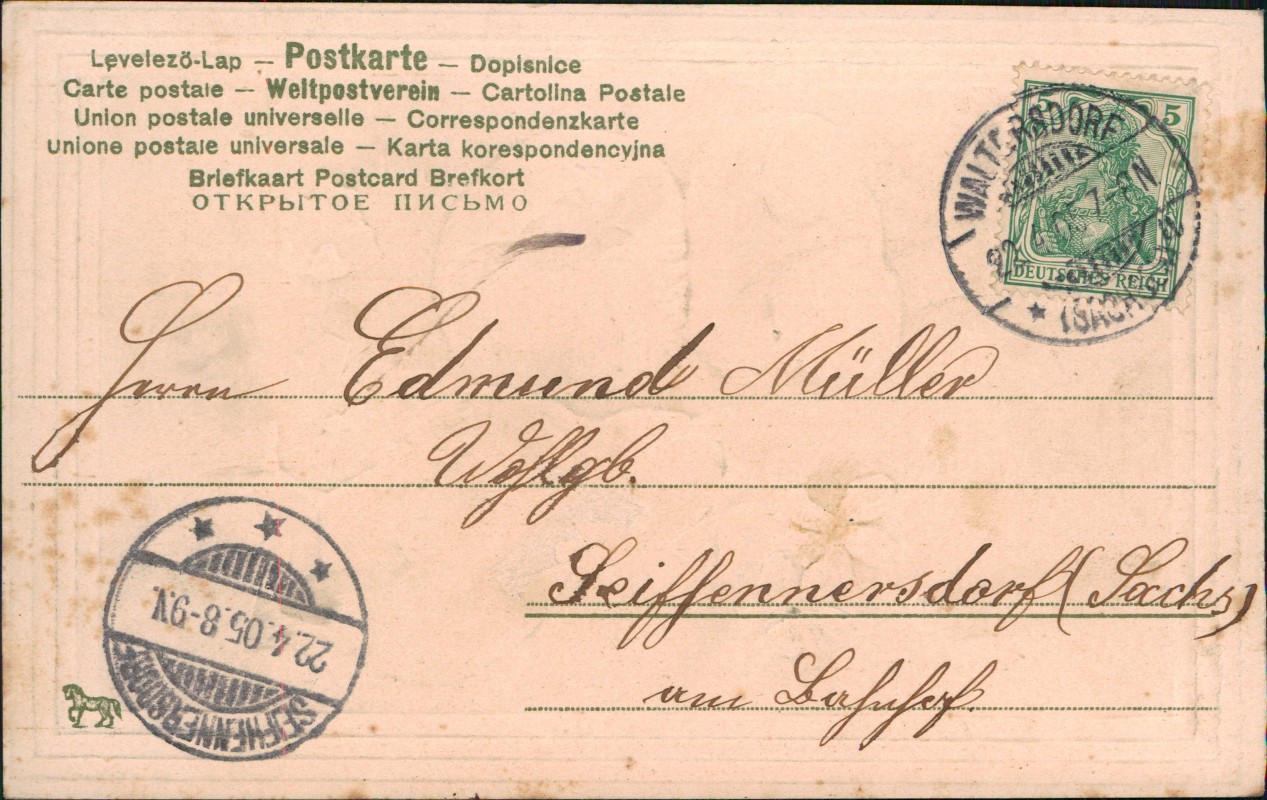 Levelező-Lap — Postkarte — Dopisnice
Carte postale — Weltpostverein — Cartolina Postale
Union postale universelle — Correspondenzkarte
Unione postale universale — Karta korespondencyjna
Briefkaart Postcard Brefkort
ОТКРЫТОЕ ПИСЬМО
5
DEUTSCHES REICH
WALTERSDORF
7-8N
(SACHS
Herrn Edmund Müller
Wohlgb.
Seiffennersdorf (Sachs)
am Bahnhof.
22.4.05.8-9.V.
SEIFHENNERSDORF